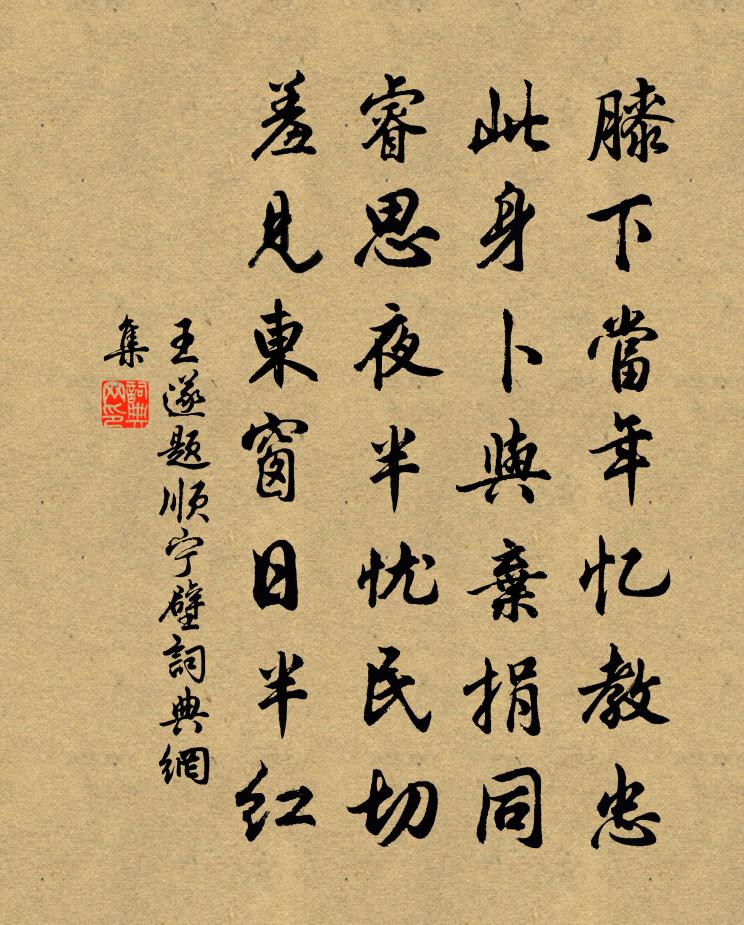 膝下當年忆教忠
此身卜與棄捐同
睿思夜半忧民切
羞見東窗日半红
王遂题顺宁壁詞典網
集
詞典
网印